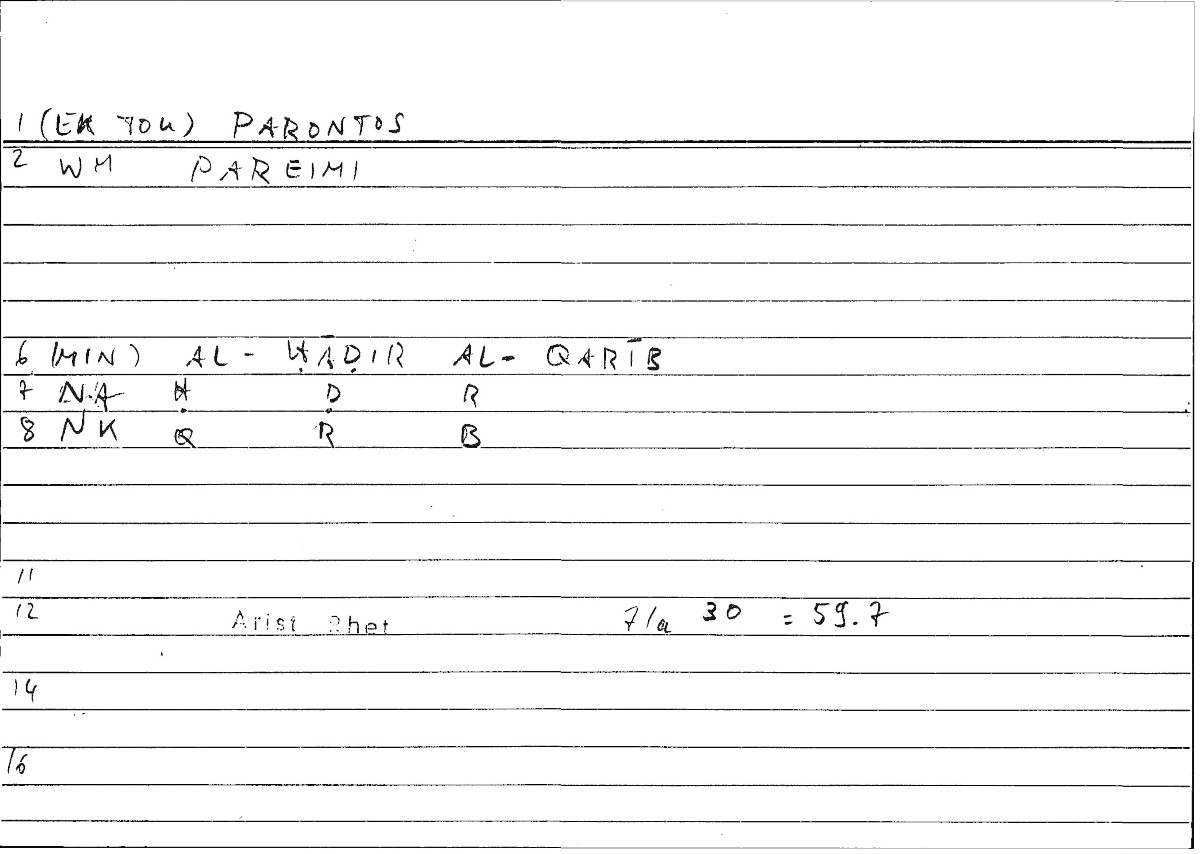 1 (EK TOU) PARONTOS
2 WM PAREIMI
6 (MIN) AL - ḤĀḌIR AL- QARĪB
7 NA Ḥ Ḍ R
8 NK Q R B
11
12 Arist Rhet 71a 30 = 59.7
14
16